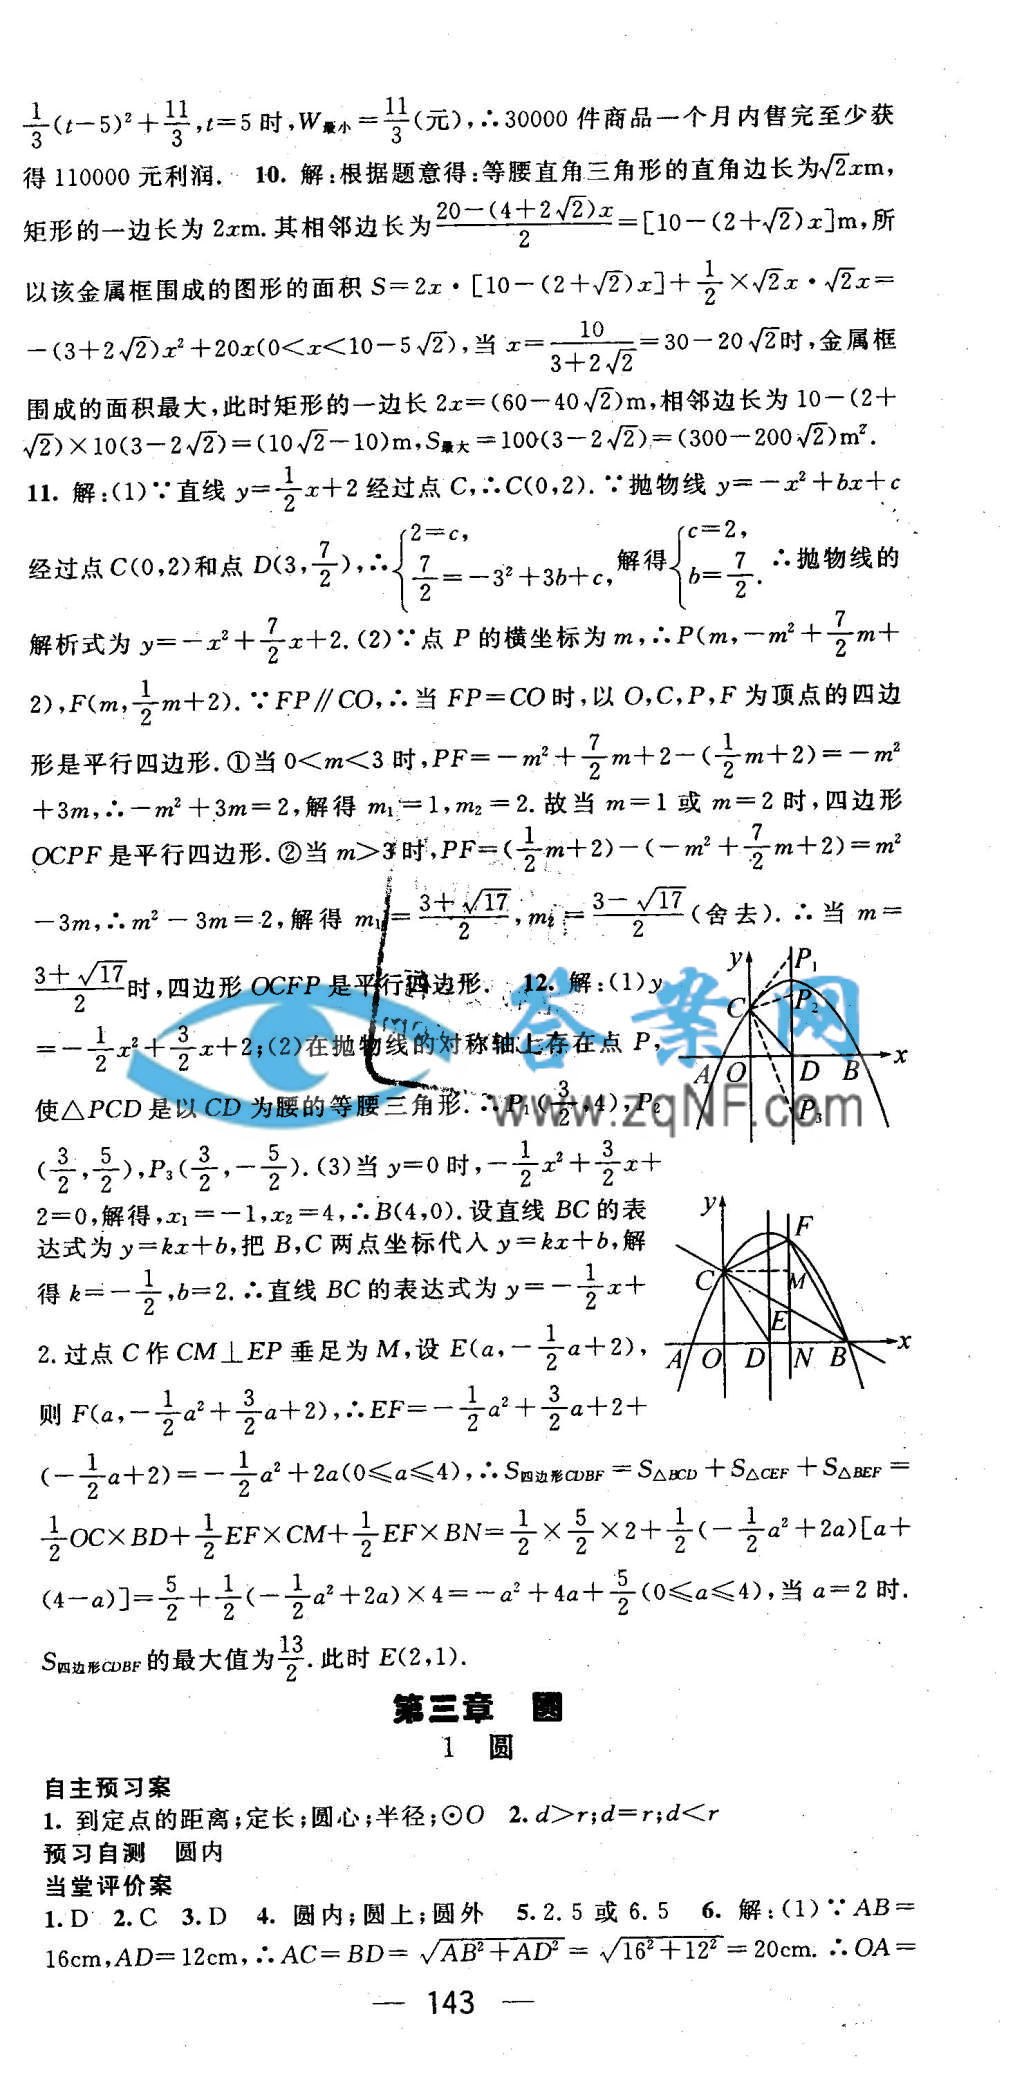 1/3(t-5)²+11/3,t=5时,W最小=11/3(元),∴30000件商品一个月内售完至少获
得110000元利润. 10. 解:根据题意得:等腰直角三角形的直角边长为√2xm,
矩形的一边长为2xm.其相邻边长为(20-(4+2√2)x)/2=[10-(2+√2)x]m,所
以该金属框围成的图形的面积S=2x·[10-(2+√2)x]+1/2×√2x·√2x=
-(3+2√2)x²+20x(0<x<10-5√2),当x=10/(3+2√2)=30-20√2时,金属框
围成的面积最大,此时矩形的一边长2x=(60-40√2)m,相邻边长为10-(2+
√2)×10(3-2√2)=(10√2-10)m,S最大=100(3-2√2)=(300-200√2)m².
11. 解:(1)∵直线y=1/2x+2经过点C,∴C(0,2).∵抛物线y=-x²+bx+c
经过点C(0,2)和点D(3,7/2),∴{2=c, 7/2=-3²+3b+c, 解得{c=2, b=7/2. ∴抛物线的
解析式为y=-x²+7/2x+2.(2)∵点P的横坐标为m,∴P(m,-m²+7/2m+
2),F(m,1/2m+2).∵FP∥CO,∴当FP=CO时,以O,C,P,F为顶点的四边
形是平行四边形.①当0<m<3时,PF=-m²+7/2m+2-(1/2m+2)=-m²
+3m,∴-m²+3m=2,解得m₁=1,m₂=2.故当m=1或m=2时,四边形
OCPF是平行四边形.②当m>3时,PF=(1/2m+2)-(-m²+7/2m+2)=m²
-3m,∴m²-3m=2,解得m₁=(3+√17)/2,m₂=(3-√17)/2(舍去).∴当m=
(3+√17)/2时,四边形OCFP是平行四边形. 12. 解:(1)y
=-1/2x²+3/2x+2;(2)在抛物线的对称轴上存在点P,
使△PCD是以CD为腰的等腰三角形.∴P₁(3/2,4),P₂
(3/2,5/2),P₃(3/2,-5/2).(3)当y=0时,-1/2x²+3/2x+
2=0,解得,x₁=-1,x₂=4,∴B(4,0).设直线BC的表
达式为y=kx+b,把B,C两点坐标代入y=kx+b,解
得k=-1/2,b=2.∴直线BC的表达式为y=-1/2x+
2.过点C作CM⊥EP垂足为M,设E(a,-1/2a+2),
则F(a,-1/2a²+3/2a+2),∴EF=-1/2a²+3/2a+2+
(-1/2a+2)=-1/2a²+2a(0≤a≤4),∴S四边形CDBF=S△BCD+S△CEF+S△BEF=
1/2OC×BD+1/2EF×CM+1/2EF×BN=1/2×5/2×2+1/2(-1/2a²+2a)[a+
(4-a)]=5/2+1/2(-1/2a²+2a)×4=-a²+4a+5/2(0≤a≤4),当a=2时.
S四边形CDBF的最大值为13/2.此时E(2,1).
y P₁
C P₂
A O D B x
P₃
y F
C M
E
A O D N B x
答案网
www.zqNF.com
第三章 圆
1 圆
自主预习案
1. 到定点的距离;定长;圆心;半径;⊙O 2. d>r;d=r;d<r
预习自测 圆内
当堂评价案
1. D 2. C 3. D 4. 圆内;圆上;圆外 5. 2.5或6.5 6. 解:(1)∵AB=
16cm,AD=12cm,∴AC=BD=√(AB²+AD²)=√(16²+12²)=20cm.∴OA=
— 143 —